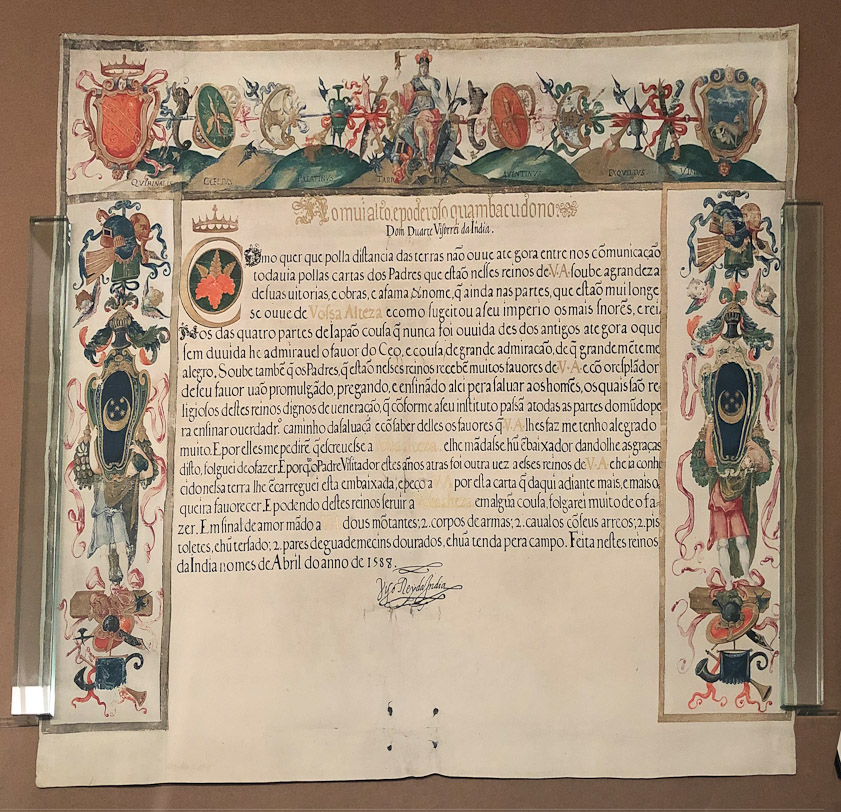 QVIRINALIS CELIVS PALATINVS TARPEIVS AVENTINVS EXQVILIVS VIMI
Ao mui alto, e poderoso quambacudono.
Dom Duarte Visorrei da India.
Como quer que polla distancia das terras não ouue ate gora entre nos cõmunicação
todauia pollas cartas dos Padres que estaõ nesses reinos de V.A. soube a grandeza
de suas uitorias, e obras, e a fama do nome, q̃ ainda nas partes, que estaõ mui longe
se ouue de Vossa Alteza e como sugeitou a seu imperio os mais sñores, e rei
nos das quatro partes de Iapaõ cousa q̃ nunca foi ouuida des dos antigos ate gora o que
sem duuida he admirauel o fauor do Ceo, e cousa, de grande admiracaõ, de q̃ grandemẽte me
alegro, Soube tambẽ q̃ os Padres, q̃ estaõ nesses reinos recebẽ muitos fauores de V.A. e cõ o resplãdor
de seu fauor uaõ promulgãdo, pregando, e ensinãdo a lei pera saluar aos homẽs, os quais saõ re
ligiosos destes reinos dignos de ueneração, q̃ cõforme a seu instituto passã a todas as partes do mũdo pe
ra ensinar o uerdadrº caminho da saluaçã e cõ saber delles os fauores q̃ V.A. lhes faz me tenho alegrado
muito. E por elles me pedirẽ q̃ escreuesse a Vossa Alteza, e lhe mãdasse hũ ẽbaixador dandolhe as graças
disto, folguei de o fazer. E porq̃ o Padre Visitador estes años atras foi outra uez a esses reinos de V.A. e he ia conhe
cido nessa terra lhe ẽcarreguei esta embaixada, e peço a V.A. por esta carta q̃ daqui adiante mais, e mais o
queira fauorecer. E podendo destes reinos seruir a Vossa Alteza em algũa cousa, folgarei muito de o fa
zer. Em sinal de amor mãdo a V.A. dous mõtantes; 2. corpos de armas; 2. caualos cõ seus arreos; 2. pis
toletes, e hũ tersado; 2. pares de guademecins dourados, e hũa tenda pera campo. Feita nestes reinos
da India no mes de Abril do anno de 1588.
Viso Rey da India